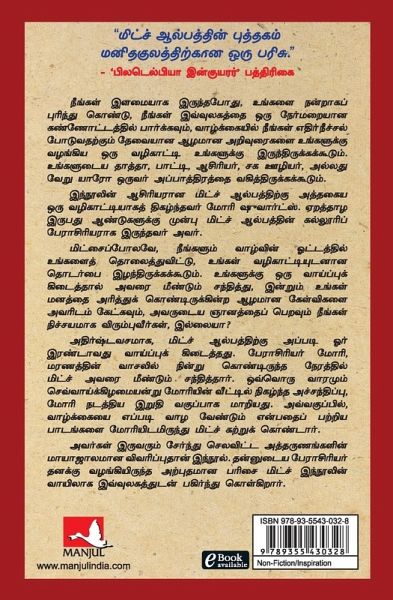 “மிட்ச் ஆல்பத்தின் புத்தகம்
மனிதகுலத்திற்கான ஒரு பரிசு.”
– ‘பிலடெல்பியா இன்குயரர்’ பத்திரிகை
நீங்கள் இளமையாக இருந்தபோது, உங்களை நன்றாகப்
புரிந்து கொண்டு, நீங்கள் இவ்வுலகத்தை ஒரு நேர்மறையான
கண்ணோட்டத்தில் பார்க்கவும், வாழ்க்கையில் நீங்கள் எதிர்நீச்சல்
போடுவதற்கும் தேவையான ஆழமான அறிவுரைகளை உங்களுக்கு
வழங்கிய ஒரு வழிகாட்டி உங்களுக்கு இருந்திருக்கக்கூடும்.
உங்களுடைய தாத்தா, பாட்டி, ஆசிரியர், சக ஊழியர், அல்லது
வேறு யாரோ ஒருவர் அப்பாத்திரத்தை வகித்திருக்கக்கூடும்.
இந்நூலின் ஆசிரியரான மிட்ச் ஆல்பத்திற்கு அத்தகைய
ஒரு வழிகாட்டியாகத் திகழ்ந்தவர் மோரி ஷுவார்ட்ஸ். ஏறத்தாழ
இருபது ஆண்டுகளுக்கு முன்பு மிட்ச் ஆல்பத்தின் கல்லூரிப்
பேராசிரியராக இருந்தவர் அவர்.
மிட்சைப்போலவே, நீங்களும் வாழ்வின் ஓட்டத்தில்
உங்களைத் தொலைத்துவிட்டு, உங்கள் வழிகாட்டியுடனான
தொடர்பை இழந்திருக்கக்கூடும். உங்களுக்கு ஒரு வாய்ப்புக்
கிடைத்தால் அவரை மீண்டும் சந்தித்து, இன்றும் உங்கள்
மனத்தை அரித்துக் கொண்டிருக்கின்ற ஆழமான கேள்விகளை
அவரிடம் கேட்கவும், அவருடைய ஞானத்தைப் பெறவும் நீங்கள்
நிச்சயமாக விரும்புவீர்கள், இல்லையா?
அதிர்ஷ்டவசமாக, மிட்ச் ஆல்பத்திற்கு அப்படி ஓர்
இரண்டாவது வாய்ப்புக் கிடைத்தது. பேராசிரியர் மோரி,
மரணத்தின் வாசலில் நின்று கொண்டிருந்த நேரத்தில்
மிட்ச் அவரை மீண்டும் சந்தித்தார். ஒவ்வொரு வாரமும்
செவ்வாய்க்கிழமையன்று மோரியின் வீட்டில் நிகழ்ந்த அச்சந்திப்பு,
மோரி நடத்திய இறுதி வகுப்பாக மாறியது. அவ்வகுப்பில்,
வாழ்க்கையை எப்படி வாழ வேண்டும் என்பதைப் பற்றிய
பாடங்களை மோரியிடமிருந்து மிட்ச் கற்றுக் கொண்டார்.
அவர்கள் இருவரும் சேர்ந்து செலவிட்ட அத்தருணங்களின்
மாயாஜாலமான விவரிப்புதான் இந்நூல். தன்னுடைய பேராசிரியர்
தனக்கு வழங்கியிருந்த அற்புதமான பரிசை மிட்ச் இந்நூலின்
வாயிலாக இவ்வுலகத்துடன் பகிர்ந்து கொள்கிறார்.
MANJUL
www.manjulindia.com
eBook
available
ISBN 978-93-5543-032-8
9 789355 430328
Non-Fiction/Inspiration